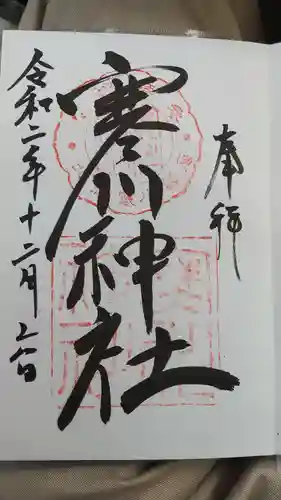 奉拝
寒川神社
令和二年十二月二八日